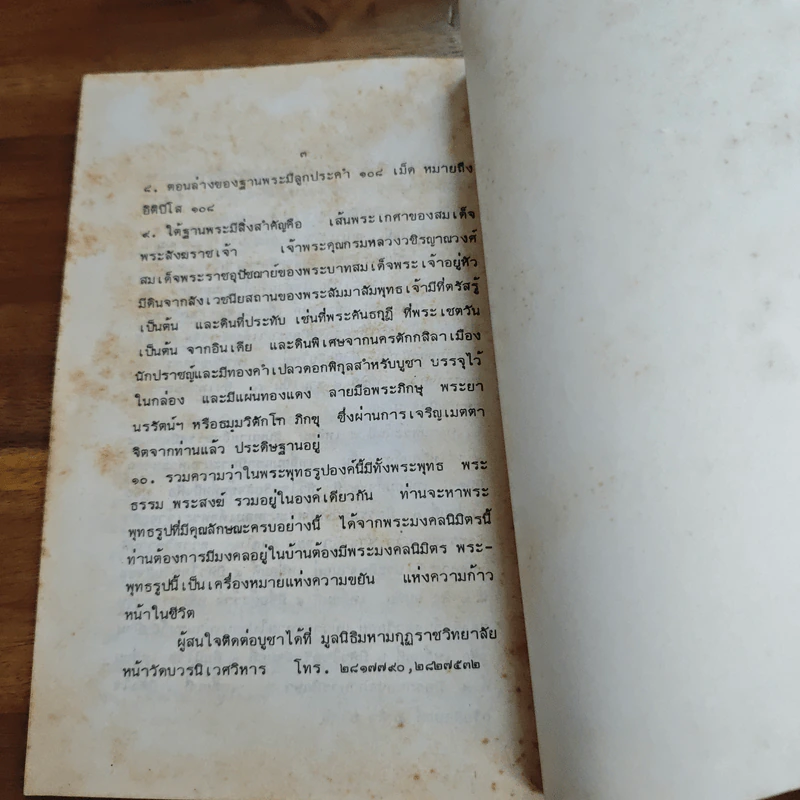 ๓
๘. ตอนล่างของฐานพระมีลูกประคำ ๑๐๘ เม็ด หมายถึง
อิติปิโส ๑๐๘
๙. ใต้ฐานพระมีสิ่งสำคัญคือ เส้นพระเกศาของสมเด็จ
พระสังฆราชเจ้า เจ้าพระคุณกรมหลวงวชิรญาณวงศ์
สมเด็จพระราชอุปัชฌาย์ของพระบาทสมเด็จพระเจ้าอยู่หัว
มีดินจากสังเวชนียสถานของพระสัมมาสัมพุทธเจ้ามีที่ตรัสรู้
เป็นต้น และดินที่ประทับ เช่นที่พระคันธกุฎี ที่พระเชตวัน
เป็นต้น จากอินเดีย และดินพิเศษจากนครตักกสิลาเมือง
นักปราชญ์และมีทองคำเปลวดอกพิกุลสำหรับบูชา บรรจุไว้
ในกล่อง และมีแผ่นทองแดง ลายมือพระภิกษุ พระยา
นรรัตน์ฯ หรือธมฺมวิตักโก ภิกขุ ซึ่งผ่านการเจริญเมตตา
จิตจากท่านแล้ว ประดิษฐานอยู่
๑๐. รวมความว่าในพระพุทธรูปองค์นี้มีทั้งพระพุทธ พระ
ธรรม พระสงฆ์ รวมอยู่ในองค์เดียวกัน ท่านจะหาพระ
พุทธรูปที่มีคุณลักษณะครบอย่างนี้ ได้จากพระมงคลนิมิตรนี้
ท่านต้องการมีมงคลอยู่ในบ้านต้องมีพระมงคลนิมิตร พระ-
พุทธรูปนี้เป็นเครื่องหมายแห่งความขยัน แห่งความก้าว
หน้าในชีวิต
ผู้สนใจติดต่อบูชาได้ที่ มูลนิธิมหามกุฏราชวิทยาลัย
หน้าวัดบวรนิเวศวิหาร โทร. ๒๘๑๗๗๙๐,๒๘๒๗๕๓๒